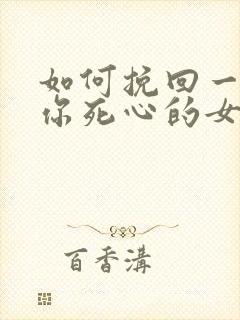 如何挽回一
你死心的女
百香溝